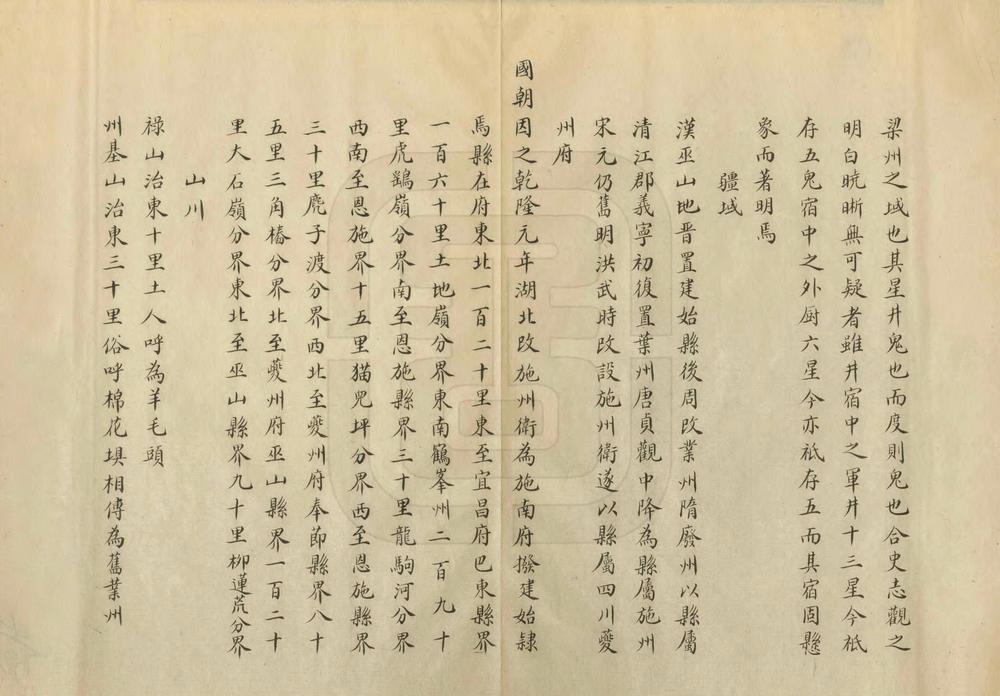 梁州之域也其星井鬼也而度則鬼也合史志觀之
明白曉晰無可疑者雖井宿中之軍井十三星今祗
存五鬼宿中之外厨六星今亦祗存五而其宿固懸
象而著明焉
疆域
漢巫山地晋置建始縣後周改業州隋廢州以縣屬
清江郡義寧初復置葉州唐貞觀中降為縣屬施州
宋元仍舊明洪武時改設施州衛遂以縣屬四川夔
州府
國朝因之乾隆元年湖北改施州衛為施南府撥建始隸
焉縣在府東北一百二十里東至宜昌府巴東縣界
一百六十里土地嶺分界東南鶴峯州二百九十
里虎鷂嶺分界南至恩施縣界三十里龍駒河分界
西南至恩施界十五里猫兒坪分界西至恩施縣界
三十里麂子渡分界西北至夔州府奉節縣界八十
五里三角樁分界北至夔州府巫山縣界一百二十
里大石嶺分界東北至巫山縣界九十里柳蓮荒分界
山川
祿山治東十里土人呼為羊毛頭
州基山治東三十里俗呼棉花埧相傳為舊葉州